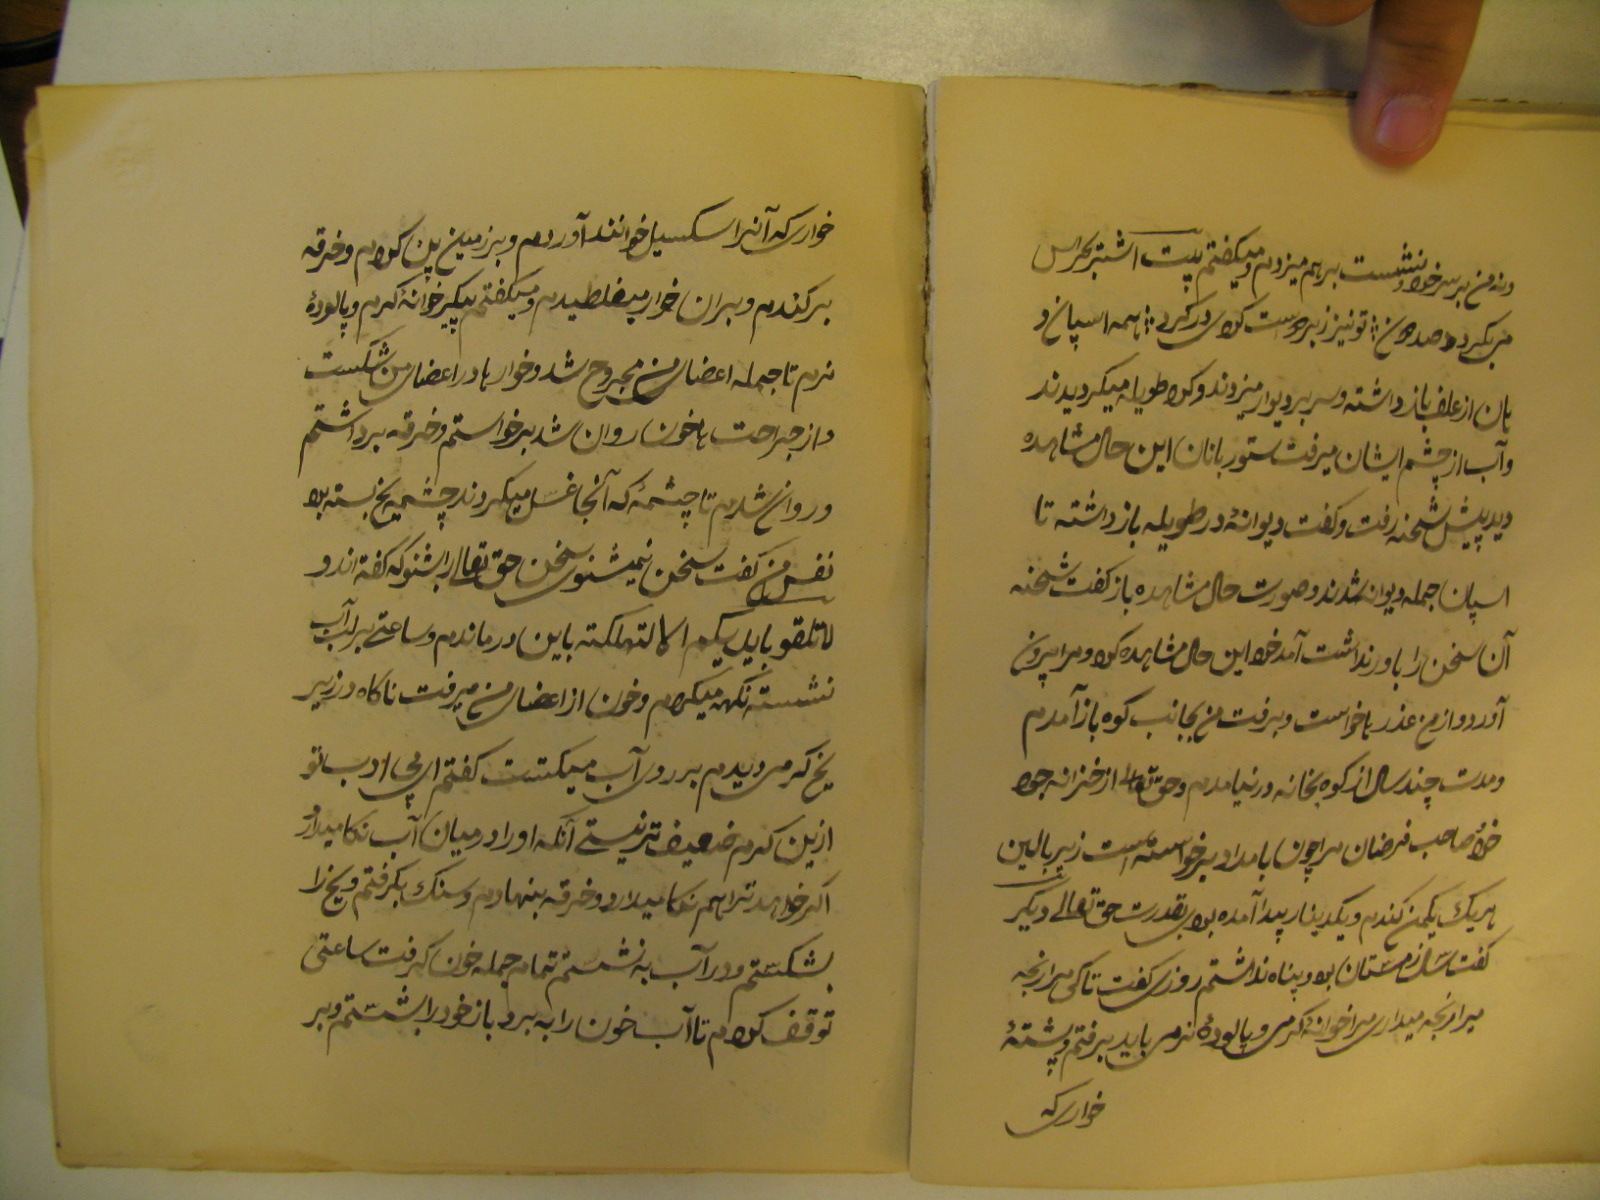 و نه من بر سر خود نشست بر هم میزدم و میگفتم بیت اشتر بحراس
می بگردد صد من تو نیز زبر دست کودی در گرد همه اسپان و
بان از علف باز داشته و سر بر دیوار میزدند و کرد طویله میگردیدند
و آب از چشم ایشان میرفت ستور بانان این حال مشاهده
دید پیش شحنه رفت و گفت دیوانهٔ در طویله باز داشته تا
اسپان جمله دیوانه شدند و صورت حال مشاهده باز گفت شحنه
آن سخن را باور نداشت آمد خود این حال مشاهده کرد و مرا بیرون
آورد و از من عذرها خواست و برفت من بجانب کوه باز آمدم
و مدت چند سال از کوه بخانه در نیامدم و حق تعالی از خزانه جود
خود صاحب فرضان مرا چون بامداد برخواسته است زیر بالین
هر یک یکمن گندم و یکدینار پیدا آمده بودی بقدرت حق تعالی دیگر
گفت سال زمستان بود و پناه نداشتم روزی گفت تا کی مرا رنجه
مرا رنجه میداری مرا خوانهٔ گرمی و پالودهٔ نرمی باید برفتم و پشتهٔ
خواری که
خواری که آنرا سکسیل خوانند آوردم و بر زمین پن کردم و خرقه
بر کندم و بران خوار میغلطیدم و میگفتم بگیر خوانهٔ گرم و پالودهٔ
نرم تا جمله اعضای من مجروح شد و خوارها در اعضای من شکست
و از جراحت ها خون روان شد برخواستم و خرقه برداشتم
و روان شدم تا چشمهٔ که آنجا غسل میکردند چشمه یخ بسته بود
نفس من گفت سخن من نمیشنوی سخن حق تعالی را بشنو که گفته اند و
لا تلقو بایدیکم الا لتهلکته باین در ماندم و ساعتی بر لب آب
نشسته نگهه میکردم و خون از اعضای من میرفت ناگاه در زیر
یخ کرمی دیدم بر روی آب میگشت گفتم ای بی ادب تو
ازین کرم ضعیف تر نیستی آنکه او را در میان آب نگا میدارد
اگر خواهد ترا هم نگا میدارد و خرقه بنهادم و سنگ بگرفتم و یخ را
بشکستم و در آب به نشستم تمام جمله خون گرفت ساعتی
توقف کردم تا آب خون را به برد باز خود را بشستم و بر